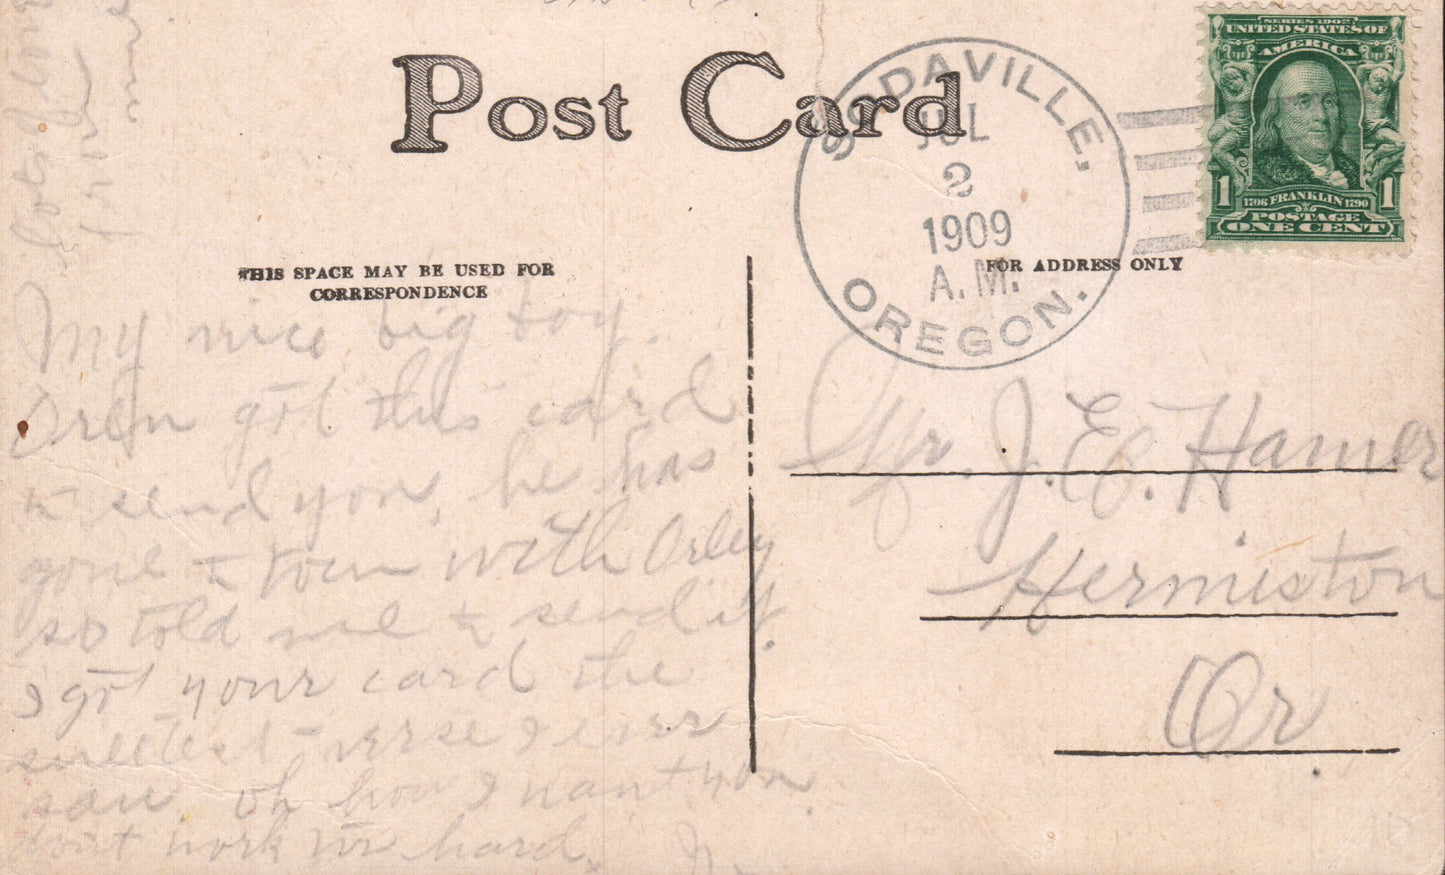 Post Card
SODAVILLE,
JUL
2
1909
A.M.
OREGON.
SERIES 1902
UNITED STATES OF
AMERICA
1 1706 FRANKLIN 1790 1
POSTAGE
ONE CENT
THIS SPACE MAY BE USED FOR
CORRESPONDENCE
FOR ADDRESS ONLY
My nice big boy.
Oren got this card
to send you, he has
gone to town with Orley
so told me to send it.
I got your card the
sweetest verse I ever
saw. oh how I want you
don't work too hard.
lots of love
from
Mr. J. E. Hamer
Hermiston
Or